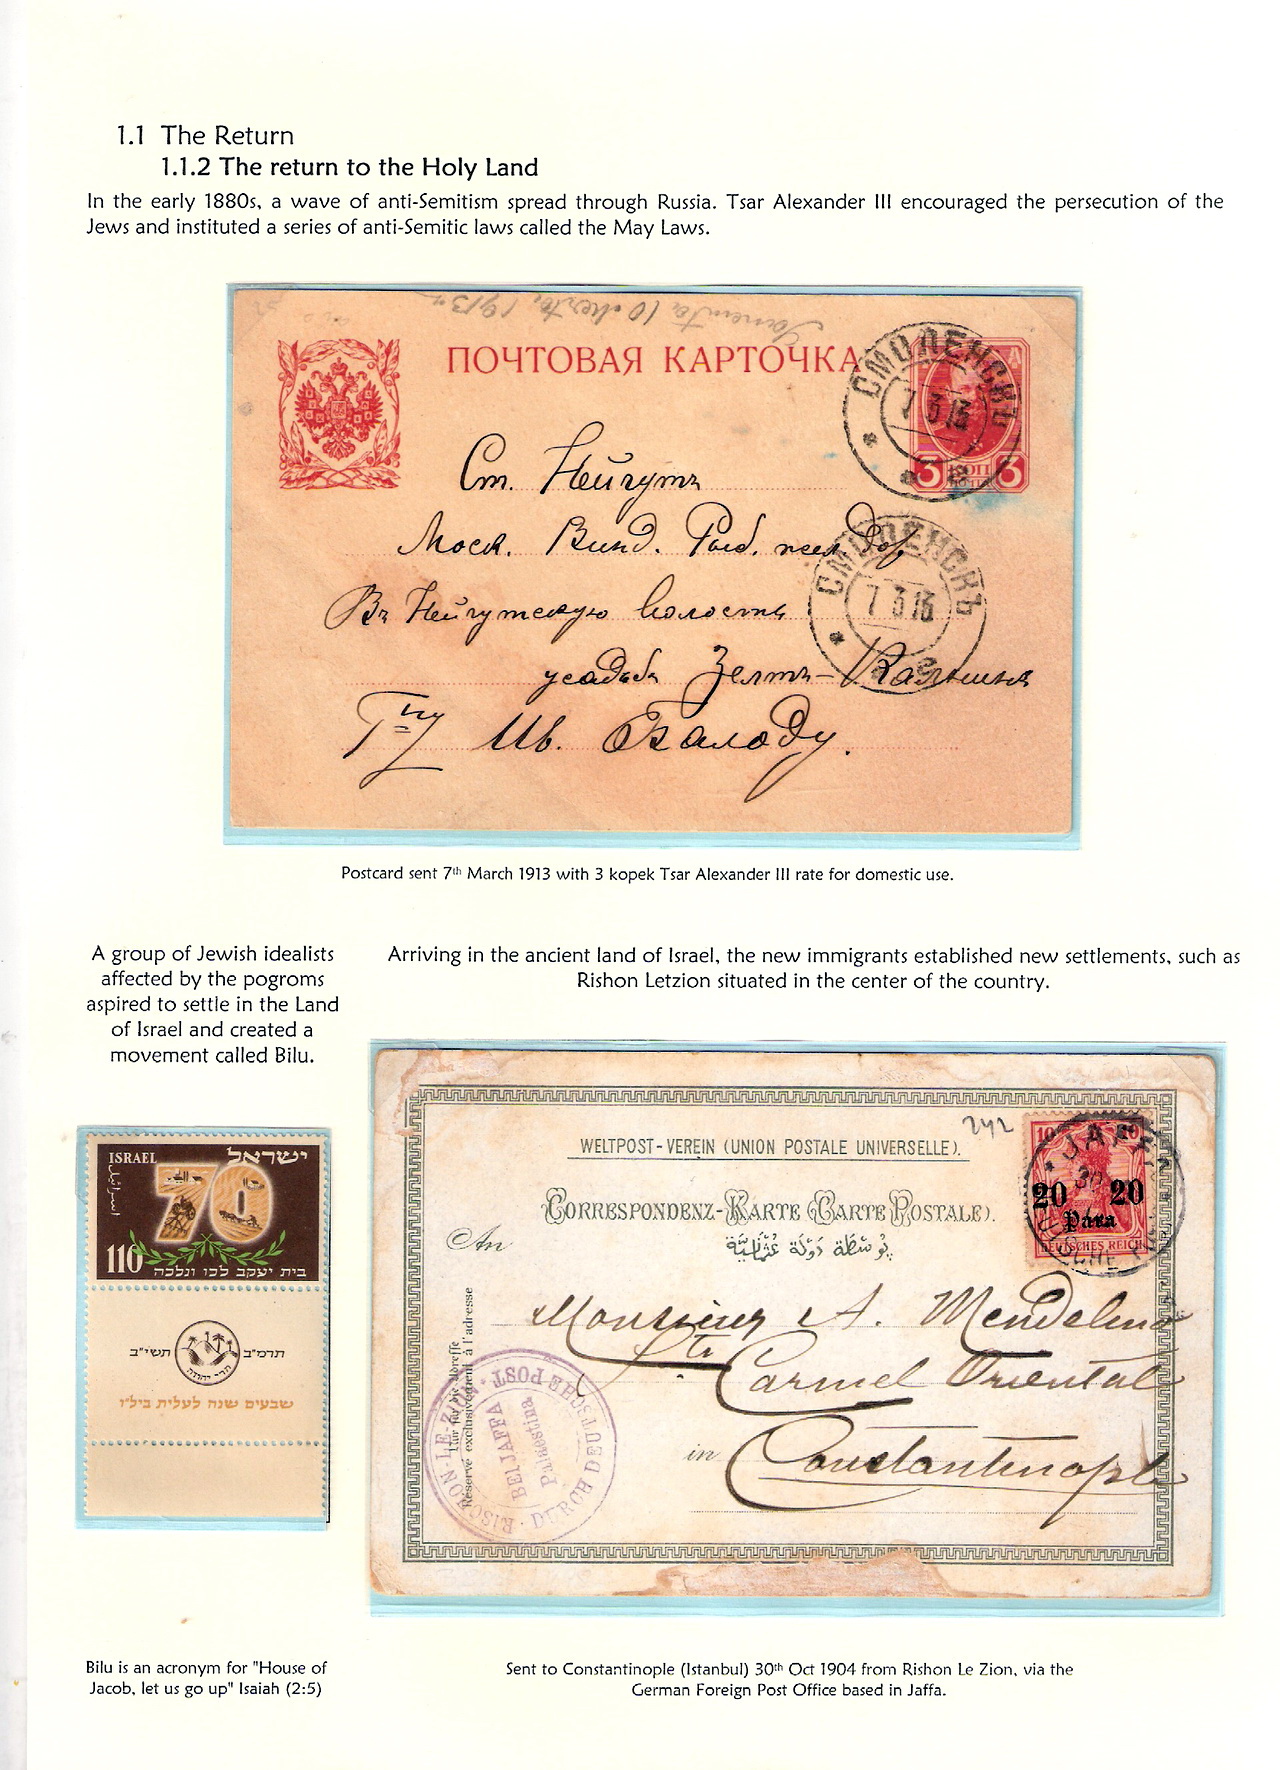 1.1 The Return
1.1.2 The return to the Holy Land
In the early 1880s, a wave of anti-Semitism spread through Russia. Tsar Alexander III encouraged the persecution of the
Jews and instituted a series of anti-Semitic laws called the May Laws.
1913
ПОЧТОВАЯ КАРТОЧКА
СМОЛЕНСКЪ
7 3 13
3 КОП 3
Ст. Нейгутъ
Моск. Винд. Рыб. жел. дор.
СМОЛЕНСКЪ
7 3 13
Въ Нейгутскую волость
усадьба Зелтъ-Кальнинъ
Гну Ив. Балоду.
Postcard sent 7th March 1913 with 3 kopek Tsar Alexander III rate for domestic use.
A group of Jewish idealists
affected by the pogroms
aspired to settle in the Land
of Israel and created a
movement called Bilu.
Arriving in the ancient land of Israel, the new immigrants established new settlements, such as
Rishon Letzion situated in the center of the country.
ISRAEL ישראל
اسرائيل
70
110 בית יעקב לכו ונלכה
תרמ"ב תשי"ב
שבעים שנה לעלית ביל"ו
242
WELTPOST-VEREIN (UNION POSTALE UNIVERSELLE).
CORRESPONDENZ-KARTE (CARTE POSTALE).
بوسطه دولة عثمانية
10
JAFFA
30
20 20
Para
DEUTSCHES REICH
An
Monsieur A. Mendelino
Carmel Oriental
in Constantinople
Nur für die Adresse
Réservé exclusivement à l'adresse
RISCHON-LE-ZION
DURCH DEUTSCHE POST
BEI JAFFA
Palaestina
Bilu is an acronym for "House of
Jacob, let us go up" Isaiah (2:5)
Sent to Constantinople (Istanbul) 30th Oct 1904 from Rishon Le Zion, via the
German Foreign Post Office based in Jaffa.